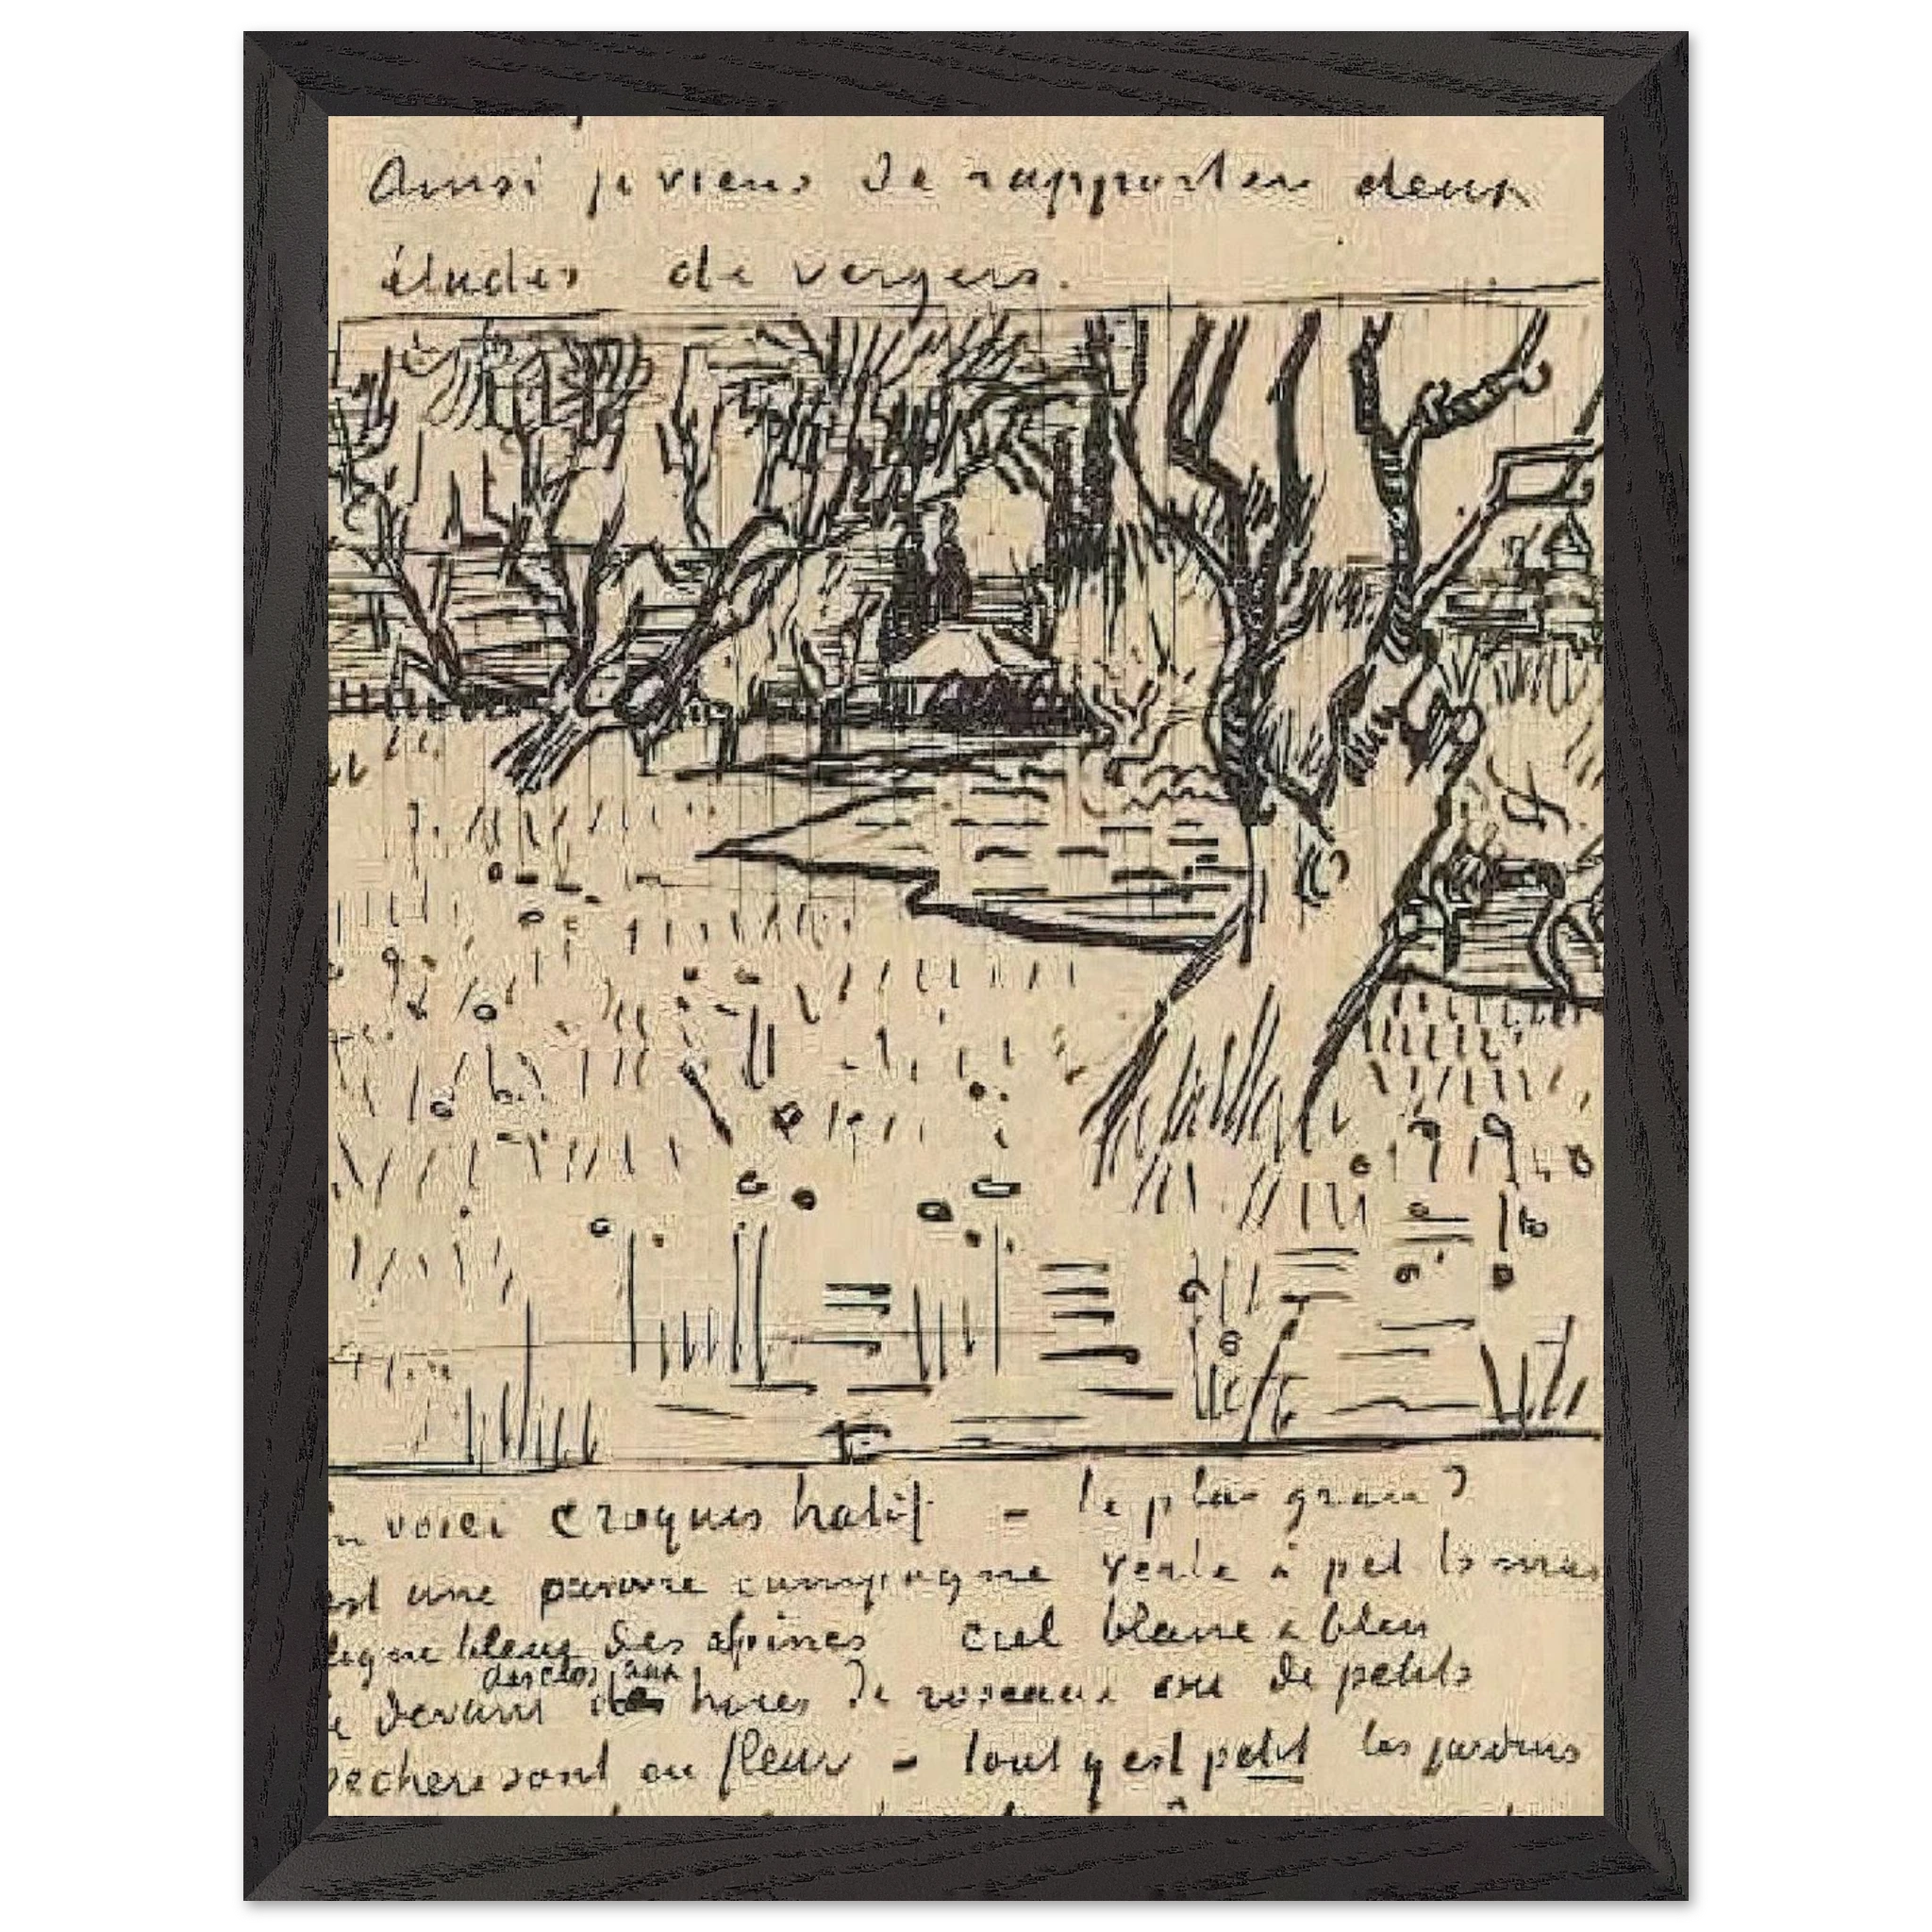 Ainsi je viens de rapporter deux
études de vergers.
En voici croquis hatif - le plus grand
est une pauvre campagne verte à petits mas
ligne bleue des alpines ciel blanc & bleu
des clos aux
le devant haies de roseaux où de petits
pechers sont en fleur - tout y est petit les jardins